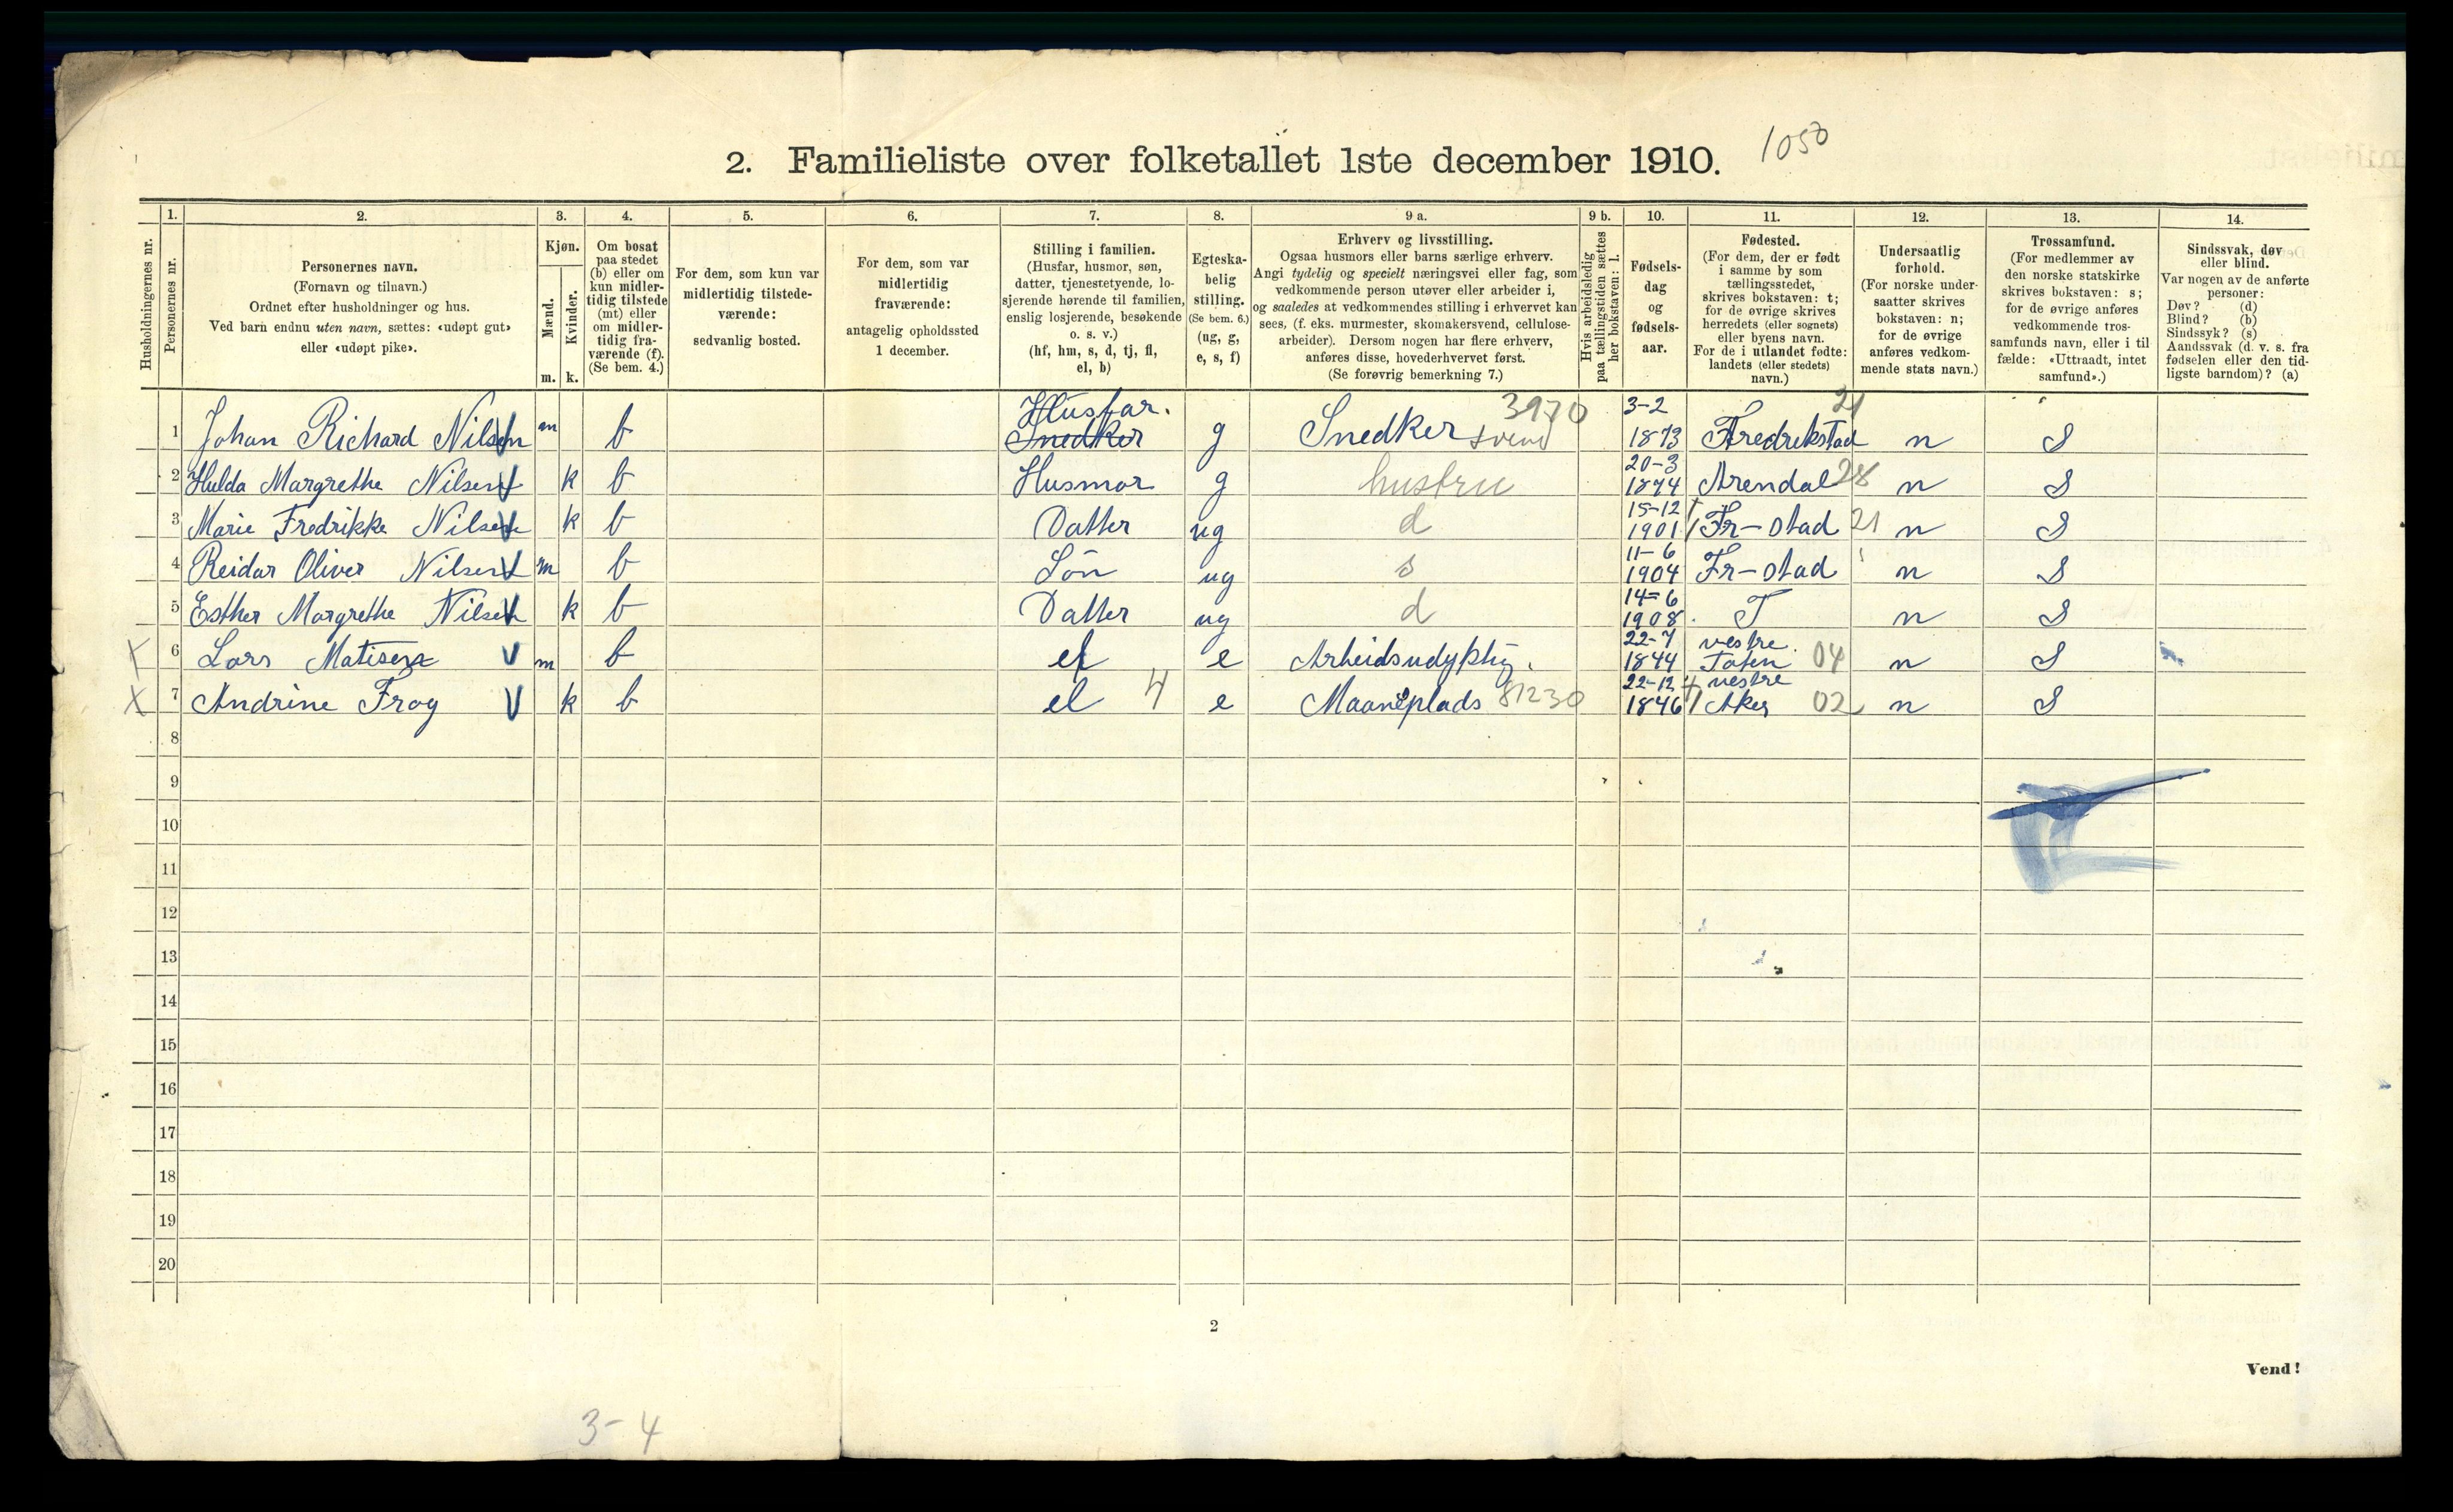 2. Familieliste over folketallet 1ste december 1910.
1050
1.
2.
3.
4.
5.
6.
7.
8.
9 a.
9 b.
10.
11.
12.
13.
14.
Husholdningernes nr.
Personernes nr.
Personernes navn.
(Fornavn og tilnavn.)
Ordnet efter husholdninger og hus.
Ved barn endnu uten navn, sættes: «udøpt gut»
eller «udøpt pike».
Kjøn.
Mænd.
Kvinder.
m.
k.
Om bosat
paa stedet
(b) eller om
kun midler-
tidig tilstede
(mt) eller
om midler-
tidig fra-
værende (f).
(Se bem. 4.)
For dem, som kun var
midlertidig tilstede-
værende:
sedvanlig bosted.
For dem, som var
midlertidig
fraværende:
antagelig opholdssted
1 december.
Stilling i familien.
(Husfar, husmor, søn,
datter, tjenestetyende, lo-
sjerende hørende til familien,
enslig losjerende, besøkende
o. s. v.)
(hf, hm, s, d, tj, fl,
el, b)
Egteska-
belig
stilling.
(Se bem. 6.)
(ug, g,
e, s, f)
Erhverv og livsstilling.
Ogsaa husmors eller barns særlige erhverv.
Angi tydelig og specielt næringsvei eller fag, som
vedkommende person utøver eller arbeider i,
og saaledes at vedkommendes stilling i erhvervet kan
sees, (f. eks. murmester, skomakersvend, cellulose-
arbeider). Dersom nogen har flere erhverv,
anføres disse, hovederhvervet først.
(Se forøvrig bemerkning 7.)
Hvis arbeidsledig
paa tællingstiden sættes
her bokstaven: l.
Fødsels-
dag
og
fødsels-
aar.
Fødested.
(For dem, der er født
i samme by som
tællingsstedet,
skrives bokstaven: t;
for de øvrige skrives
herredets (eller sognets)
eller byens navn.
For de i utlandet fødte:
landets (eller stedets)
navn.)
Undersaatlig
forhold.
(For norske under-
saatter skrives
bokstaven: n;
for de øvrige
anføres vedkom-
mende stats navn.)
Trossamfund.
(For medlemmer av
den norske statskirke
skrives bokstaven: s;
for de øvrige anføres
vedkommende tros-
samfunds navn, eller i til
fælde: «Uttraadt, intet
samfund».)
Sindssvak, døv
eller blind.
Var nogen av de anførte
personer:
Døv? (d)
Blind? (b)
Sindssyk? (s)
Aandssvak (d. v. s. fra
fødselen eller den tid-
ligste barndom)? (a)
Husfar. 3970 3-2 21
1 Johan Richard Nilsen m b Snedker g Snedker svend 1873 Fredrikstad n S
20-3
2 Hulda Margrethe Nilsen k b Husmor g hustru 1874 Arendal 28 n S
15-12
3 Marie Fredrikke Nilsen k b Datter ug d 1901 Fr-stad 21 n S
11-6
4 Reidar Oliver Nilsen m b Søn ug s 1904 Fr-stad n S
14=6
5 Esther Margrethe Nilsen k b Datter ug d 1908 T n S
22-7 vestre
X 6 Lars Matisen m b el e Arbeidsudygtig. 1844 Toten 04 n S
22-12 vestre
X 7 Andrine Frog k b el 4 e Maaneplads 81230 1846 Aker 02 n S
8
9
10
11
12
13
14
15
16
17
18
19
20
2
Vend!
3-4